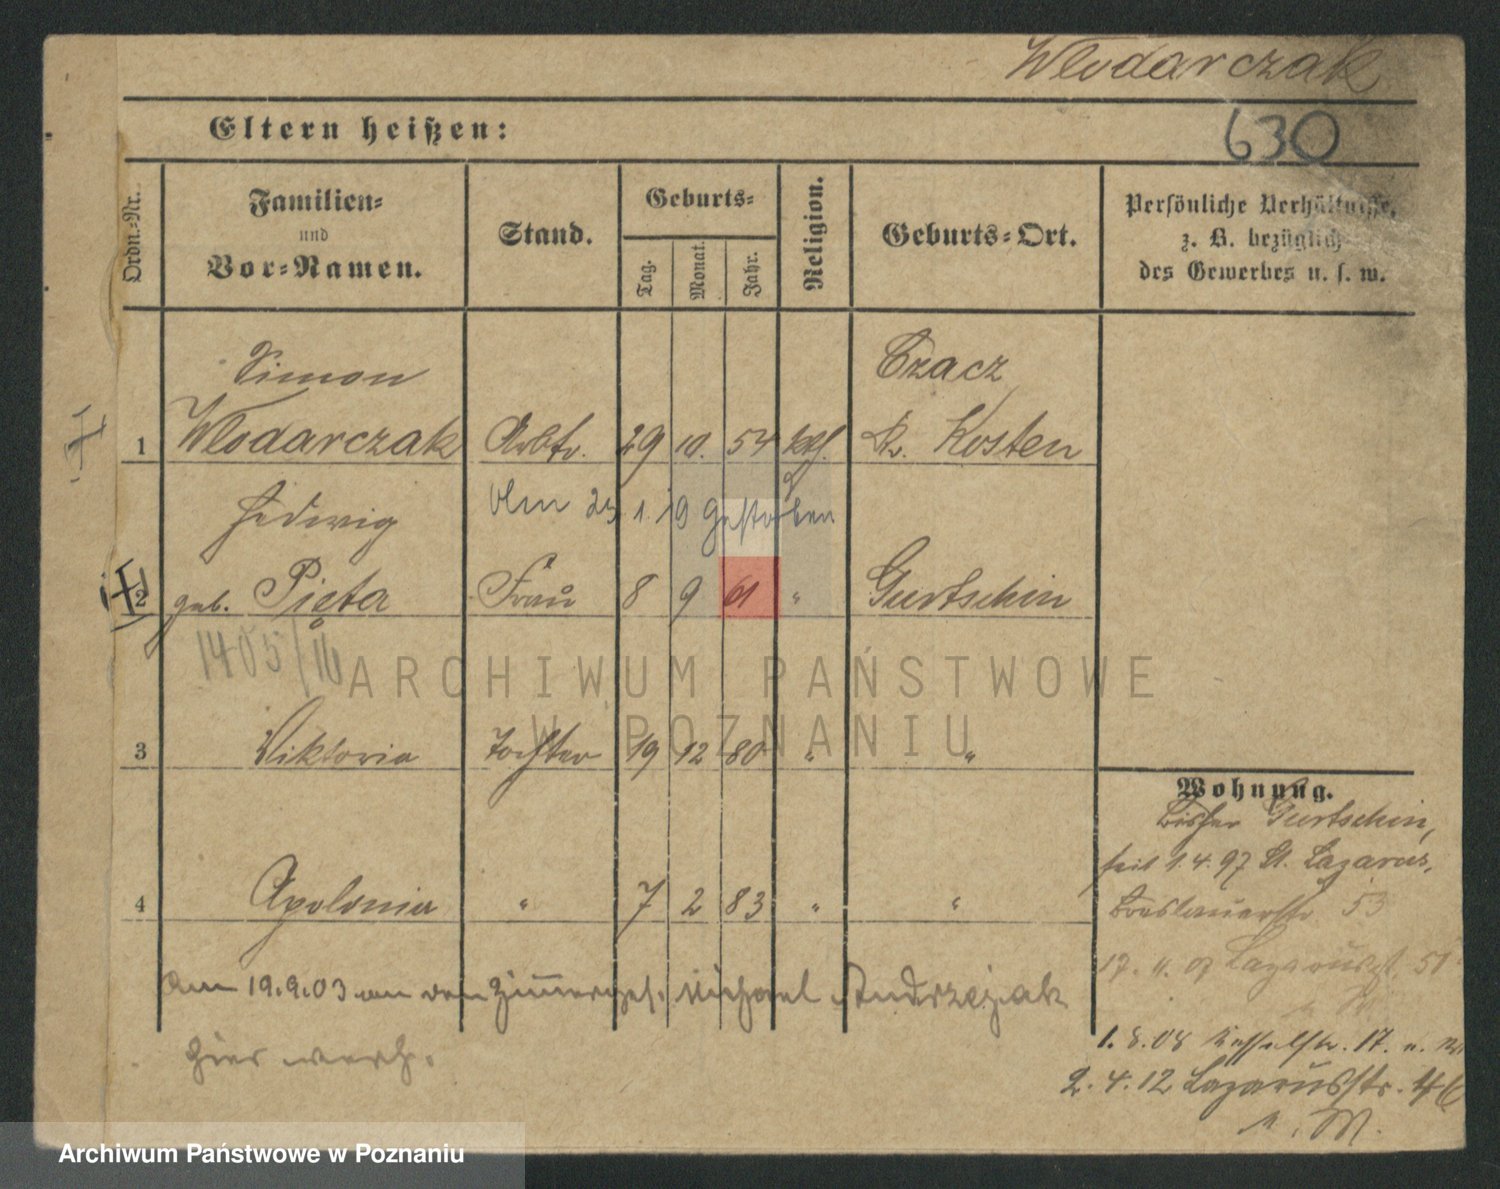 Wlodarczak
630
Eltern heißen:
Ordn.-Nr.
Familien-
und
Vor-Namen.
Stand.
Geburts-
Tag.
Monat.
Jahr.
Religion.
Geburts-Ort.
Persönliche Verhältnisse,
z. B. bezüglich
des Gewerbes u. s. w.
Simon
Czacz
1 Wlodarczak Arbtr. 29 10. 54 kth. Kr. Kosten
Hedwig
Am 25.1.19 gestorben
2 geb. Pięta Frau 8 9 61 " Gurtschin
1405/16
ARCHIWUM PAŃSTWOWE
W POZNANIU
3 Viktoria Tochter 19 12 80 " "
Wohnung.
Bisher Gurtschin,
seit 1.4.97 St. Lazarus,
Breslauerstr 53
4 Apolonia " 7 2 83 " "
17. 11. 07 Lazarusst. 51
Am 19.9.03 an den Zimmerges. Michael Andrzejak
hier verh.
1. 8. 08 17.
2. 4. 12 Lazarusstr. 46
n. M.
Archiwum Państwowe w Poznaniu